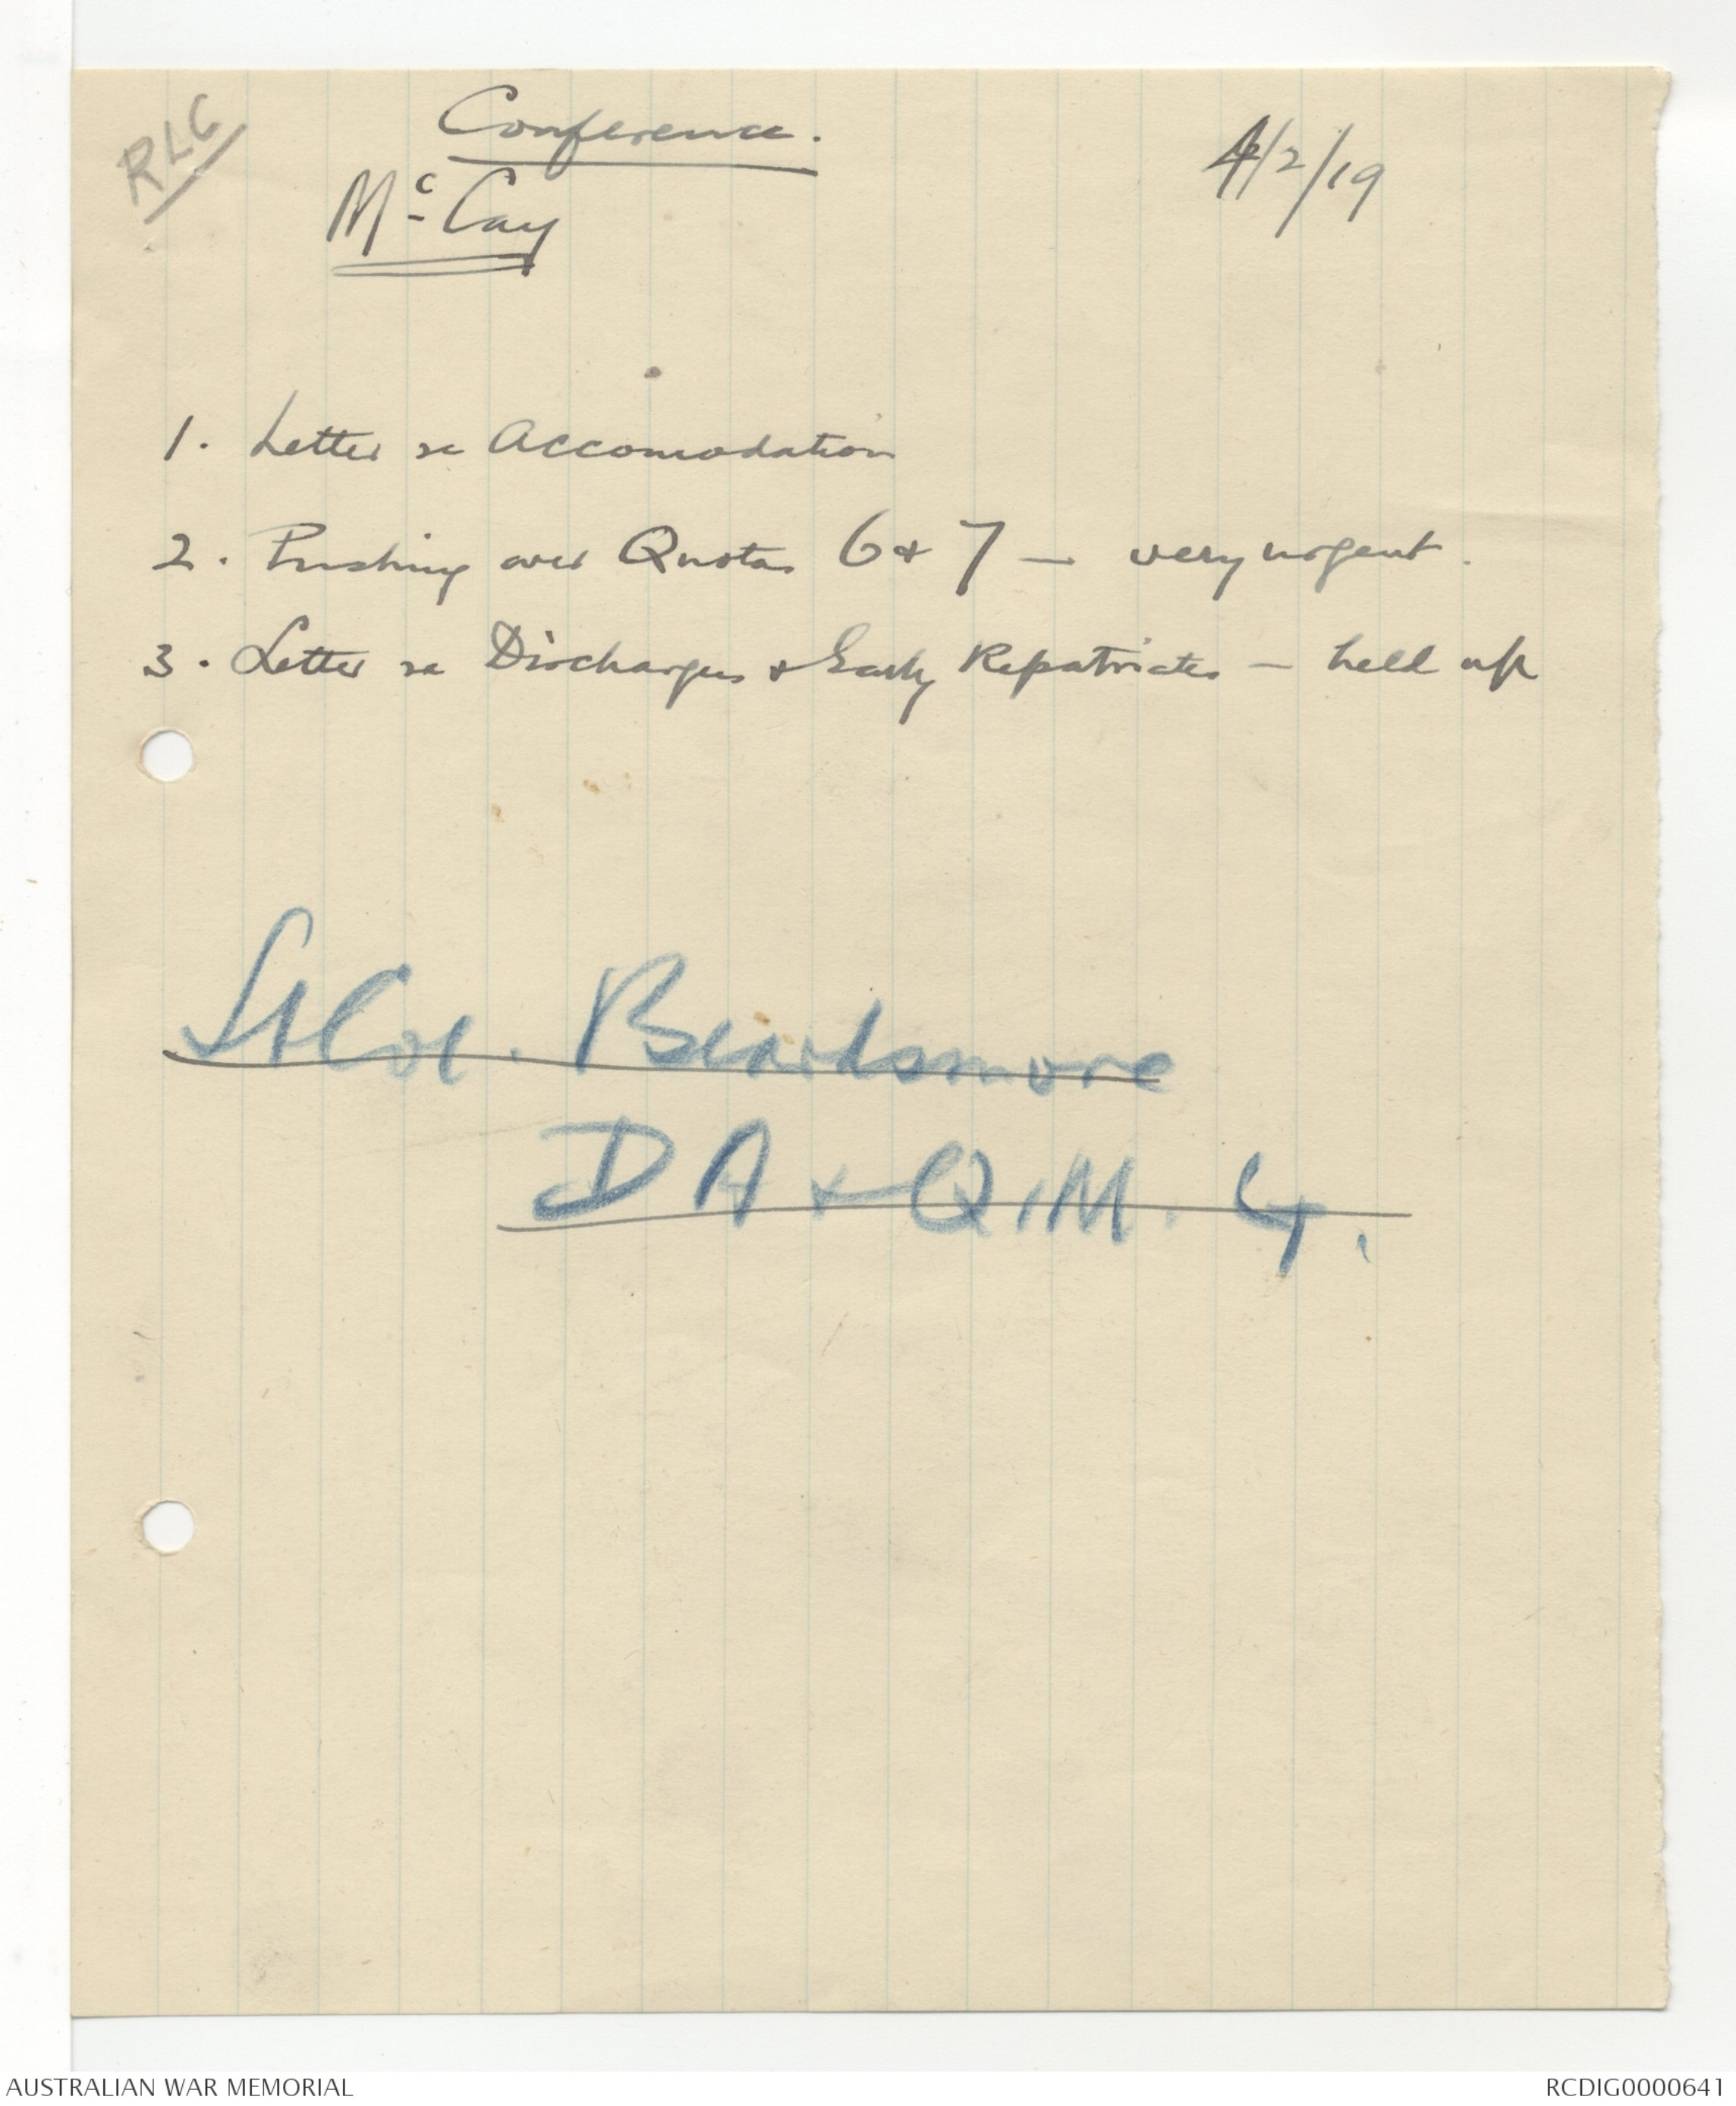 RLC
Conference.
4/2/19
McCay
1. Letter re Accomodation
2. Pushing over Quotas 6 & 7 — very urgent.
3. Letter re Discharges & Early Repatriates — held up
Lt Col. Beardsmore
DA & Q.M.G.
AUSTRALIAN WAR MEMORIAL
RCDIG0000641